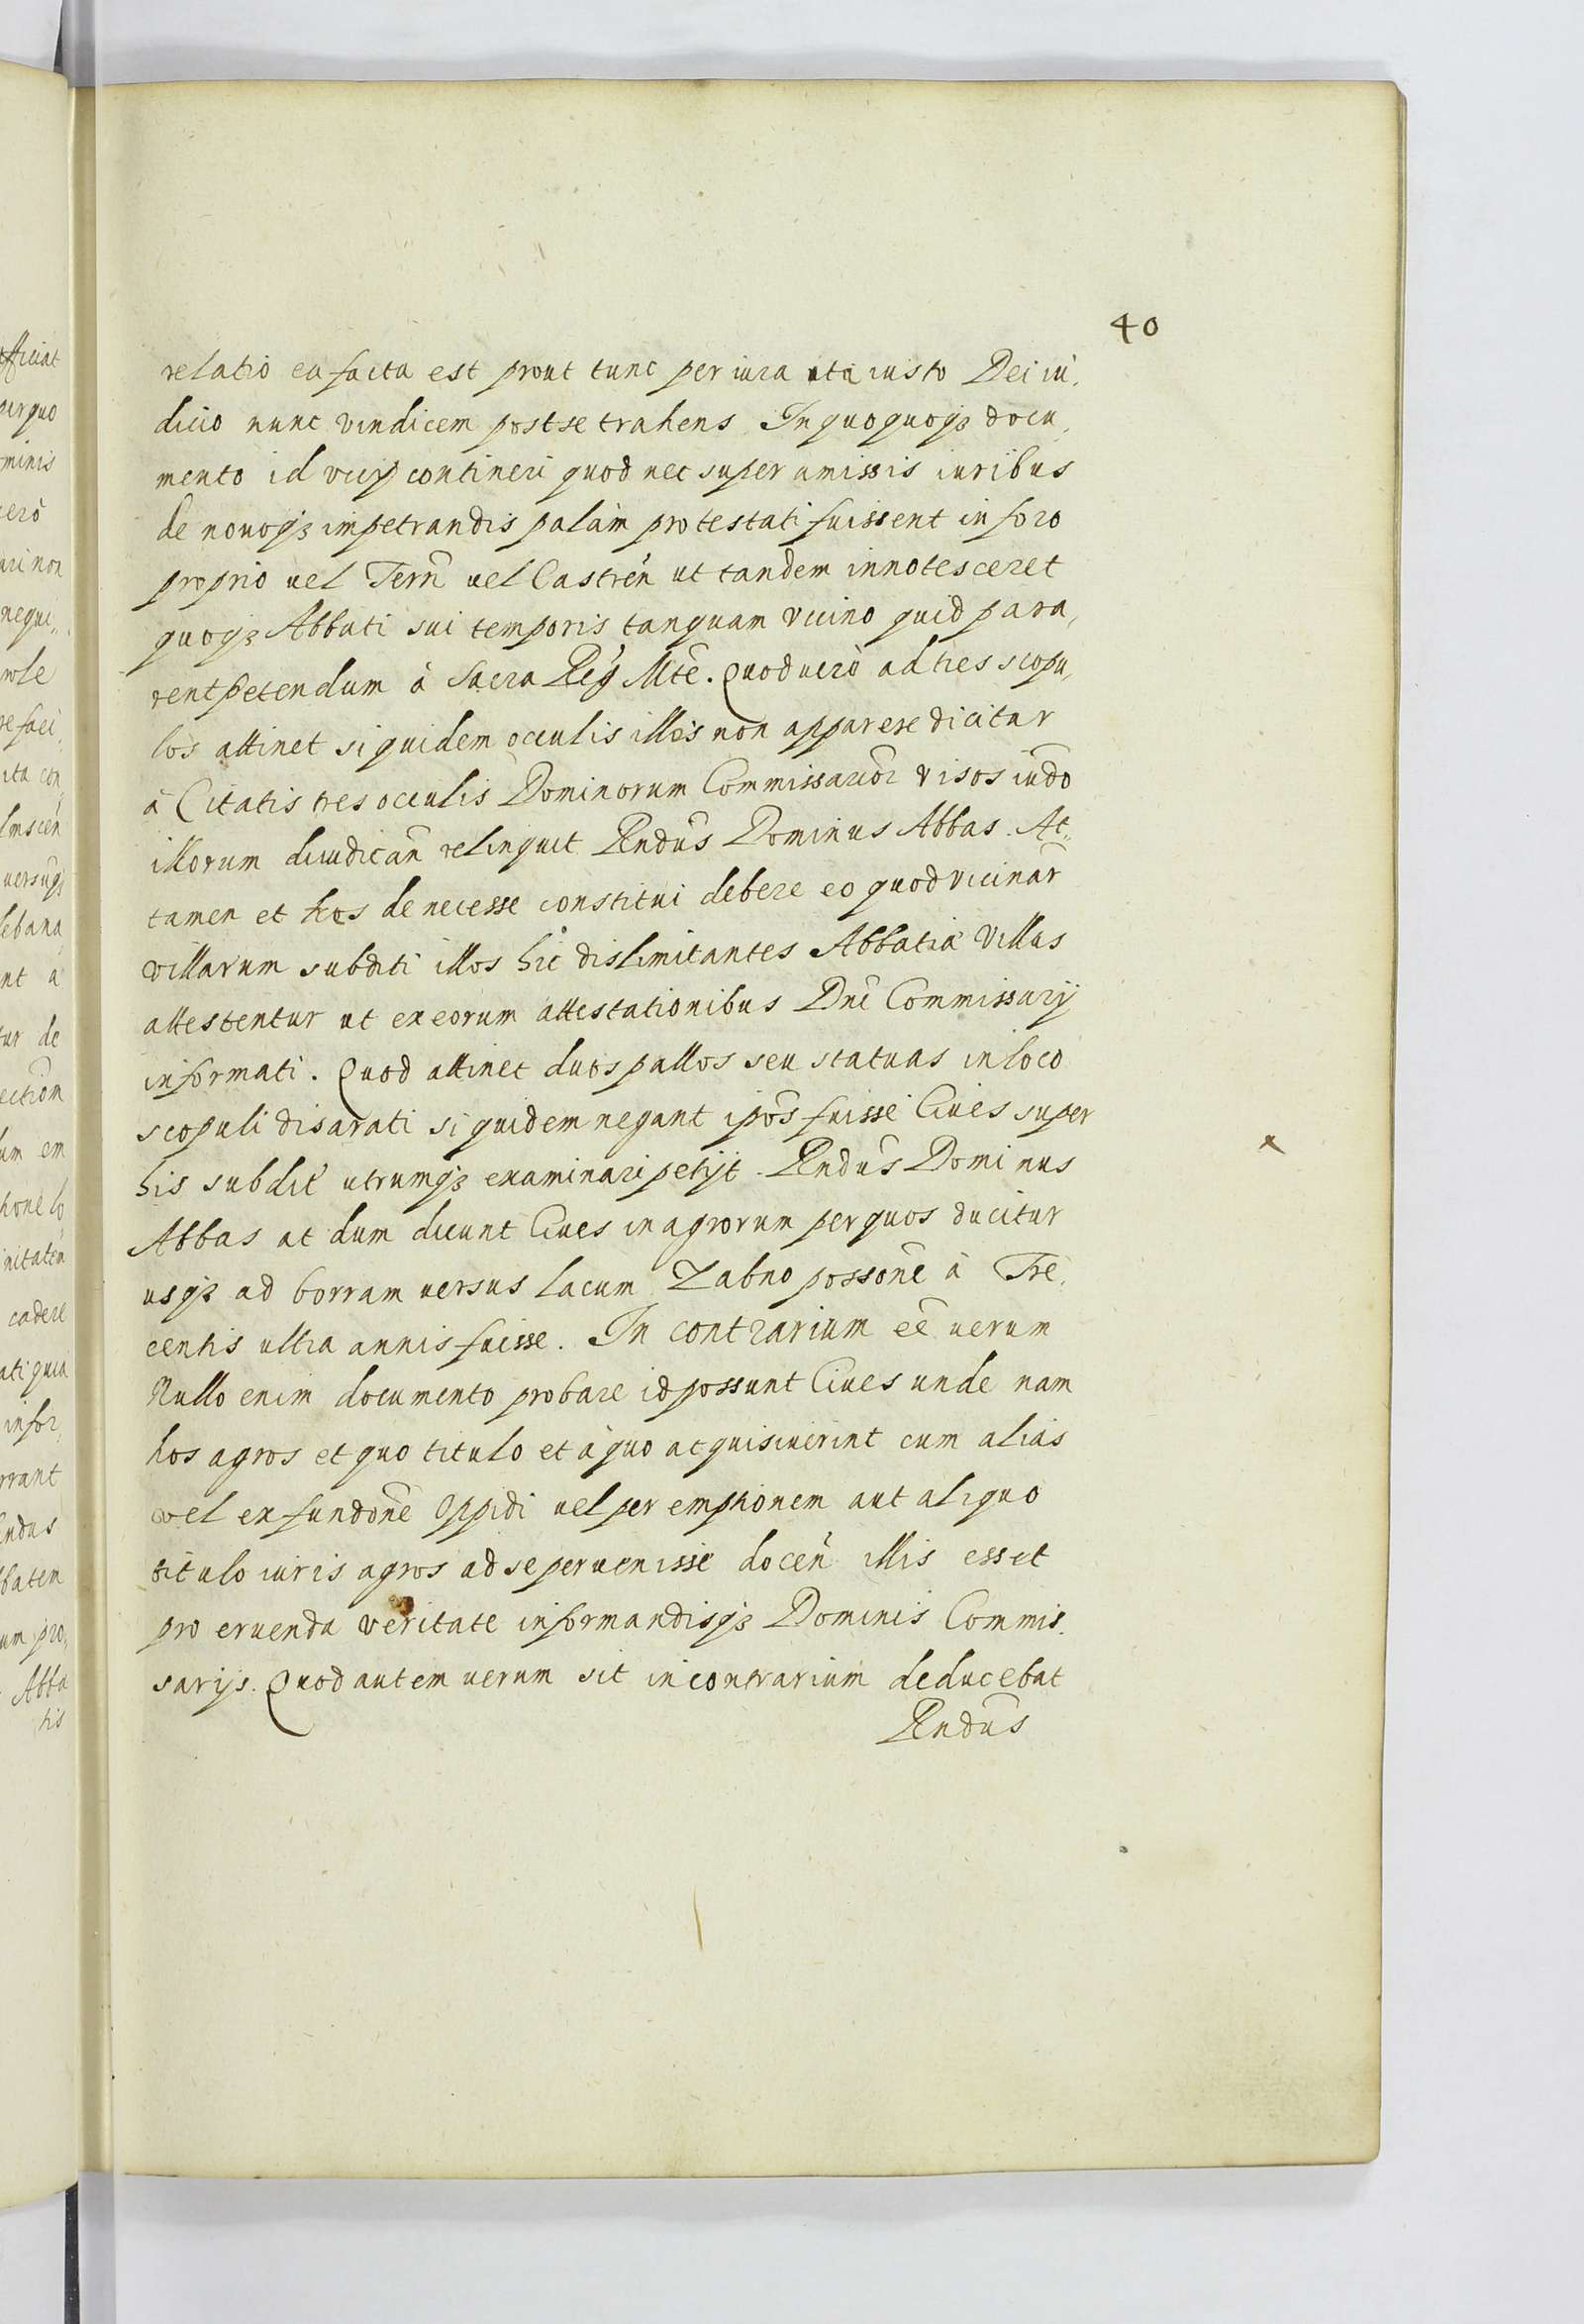 40
relatio ea facta est prout tunc per iura uti iusto Dei iu,
dicio nunc vindicem post se trahens. In quo quoqz docu,
mento id contineri quod nec super amissis iuribus
de nouoqz impetrandis palàm protestati fuissent in foro
proprio uel Terrñ uel Castreñ ut tandem innotesceret
quoqz Abbati sui temporis tanquam vicino quid para,
rent petendum à Sacra Reg Mtẽ. Quod uerò ad tres scopu,
los attinet siquidem occulis illos non apparere dicitur
à Citatis tres occulis Dominorum Commissarioȓ visos iudo
illorum diiudicañ relinquit Rndus Dominus Abbas. At,,
tamen et hos de necesse constitui debere eo quod vicinar
villarum subditi illos hic dislimitantes Abbatia Villas
attestentur ut ex eorum attestationibus Dnĩ Commissarij
informati. Quod attinet duos pallos seu statuas in loco
scopuli disarati siquidem negant ipos fuisse Ciues super
his subdit utrumqz examinari petijt Rndus Dominus
Abbas at dum dicunt Ciues in agrorum per quos ducitur
usqz ad borram uersus lacum Zabno possonẽ à Tre,
centis ultra annis fuisse. In contrarium eẽ uerum
Nullo enim documento probare id possunt Ciues unde nam
hos agros et quo titulo et à quo acquisiuerint cum alias
vel ex fundonẽ Oppidi uel per emptionem aut aliquo
titulo iuris agros ad se peruenisse doceñ illis esset
pro eruenda veritate informandisqz Dominis Commis,
sarijs. Quod autem uerum sit in contrarium deducebat
Rndus
x